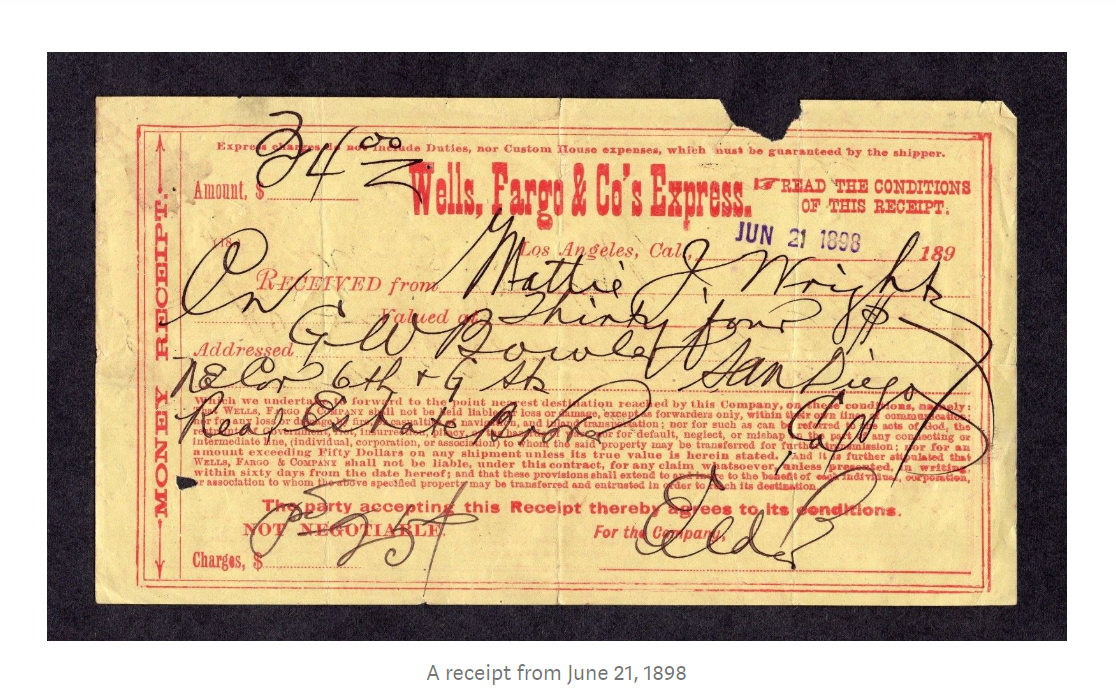 Express charges do not include Duties, nor Custom House expenses, which must be guaranteed by the shipper.
34 00
Amount, $
Wells, Fargo & Co's Express.
☞ READ THE CONDITIONS
OF THIS RECEIPT.
JUN 21 1898
Los Angeles, Cal., 189
On
RECEIVED from Mattie J. Wright
Valued at Thirty four $
Addressed G W Bowler San Diego
NE Cor 6th + G Sts
Real Estate Broker Cal
Which we undertake to forward to the point nearest destination reached by this Company, on these conditions, namely:
that WELLS, FARGO & COMPANY shall not be held liable for loss or damage, except as forwarders only, within their own lines of communication;
nor for any loss or damage of fire, casualties of navigation, and inland transportation; nor for such as can be referred to the acts of God, the
restraints of Government, insurrection, or for default, neglect, or mishap on the part of any connecting or
intermediate line, (individual, corporation, or association) to whom the said property may be transferred for further transmission; nor for an
amount exceeding Fifty Dollars on any shipment unless its true value is herein stated. And it is further stipulated that
WELLS, FARGO & COMPANY shall not be liable, under this contract, for any claim whatsoever, unless presented, in writing
within sixty days from the date hereof; and that these provisions shall extend to and inure to the benefit of each individual, corporation,
or association to whom the above specified property may be transferred and entrusted in order to reach its destination.
The party accepting this Receipt thereby agrees to its conditions.
NOT NEGOTIABLE.
For the Company,
Charges, $
MONEY RECEIPT.
A receipt from June 21, 1898